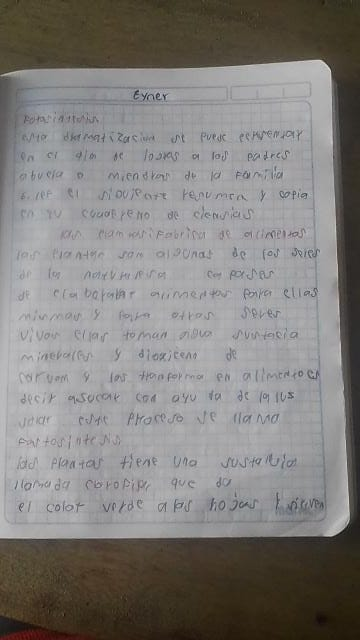 Eyner
Fotosintesis
esta dramatizacion se puede
en el dia de logros a los padres
abuela o miembros de la familia
6. leer el siguiente resumen y copia
en tu cuaderno de ciensias
las plantas fabrica de alimentos
las plantan son algunas de los seres
de la naturaresa capases
de elavorarar alimentos para ellas
mismas y para otros seres
vivos ellas toman agua sustacia
minerales y dioxiceno de
carvom y las tranforma en alimentos es
decir asucar con ayuda de la lus
solar este proceso se llama
Fostosintesis
las plantas tiene una sustansia
llamada clorofira que da
el color verde a las hojas y sirven